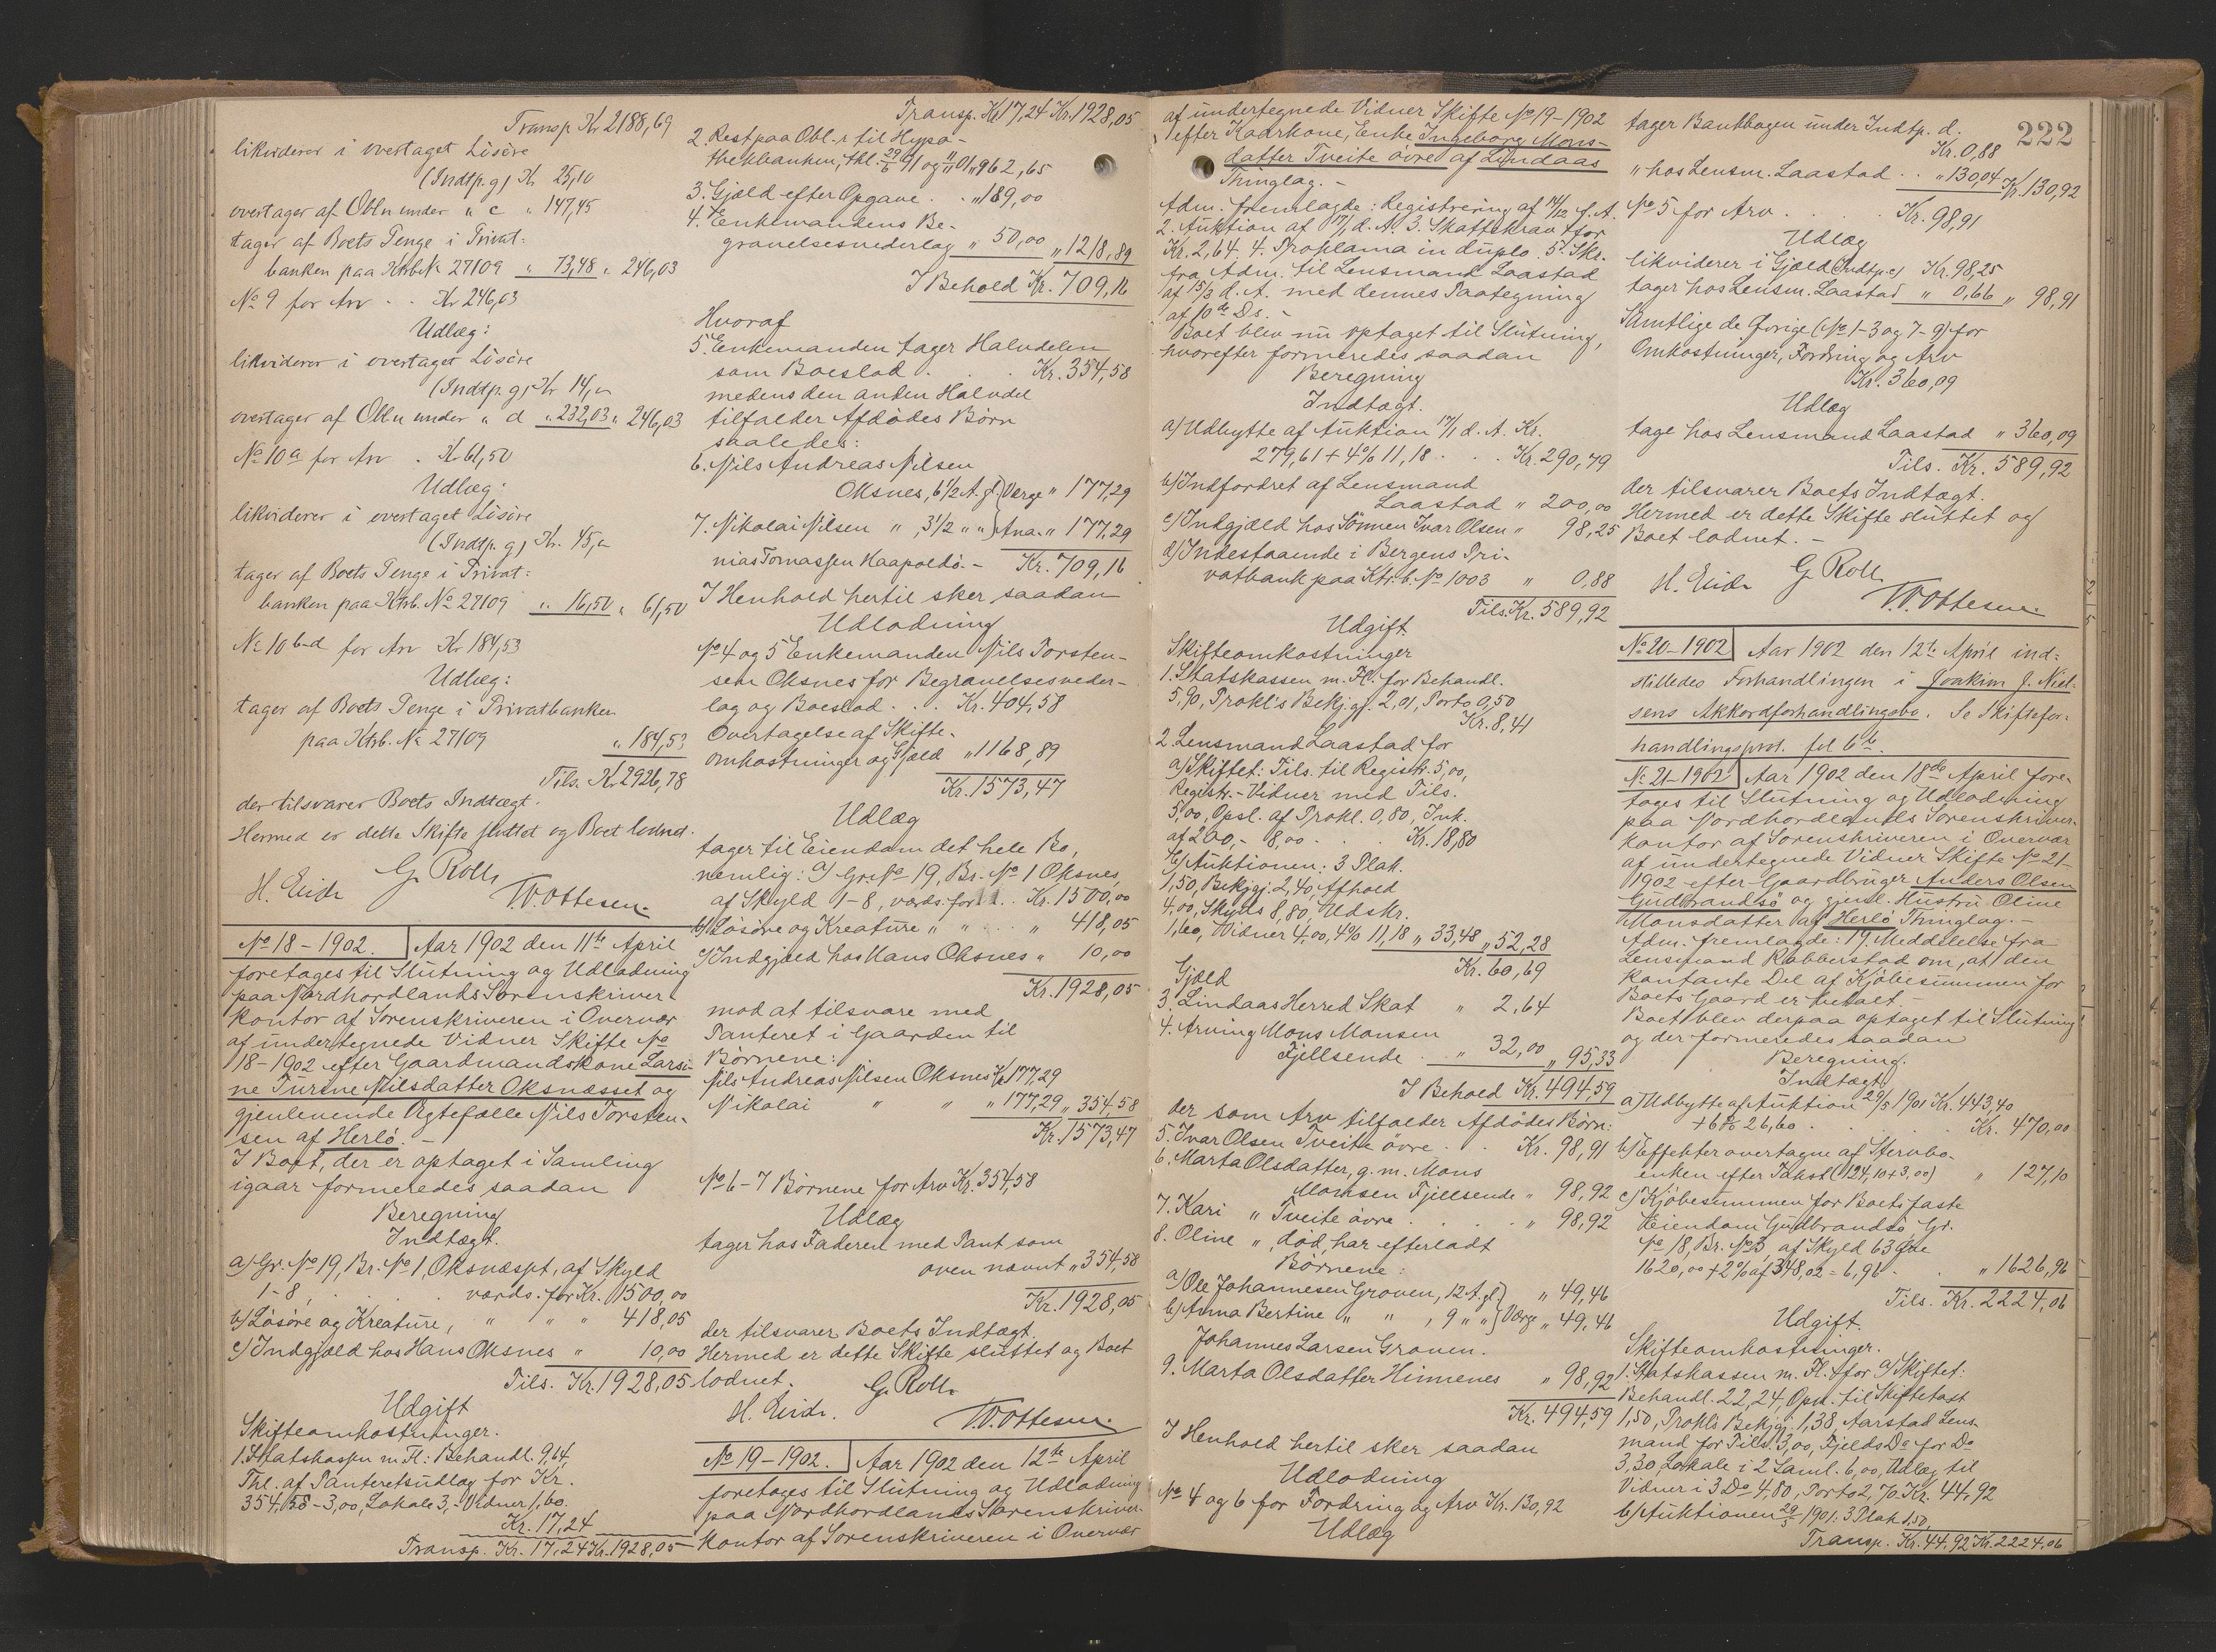 Transp. Kr 2188,69
likviderer i overtaget Løsøre
(Indtp. g) Kr 25,10
overtager af Obln under " c " 147,45
tager af Boets Penge i Privat=
banken paa Ktrb No 27109 " 73,48 " 246,03
No 9 for Arv . . Kr 246,03
Udlæg:
likviderer i overtaget Løsøre
(Indtp. g) Kr 14,00
overtager af Obln under " d " 232,03 " 246,03
No 10a for Arv . Kr 61,50
Udlæg:
likviderer i overtaget Løsøre
(Indtp. g) Kr. 45,00
tager af Boets Penge i Privat=
banken paa Ktrb. No 27109 " 16,50 " 61,50
No 10 b-d for Arv Kr 184,53
Udlæg:
tager af Boets Penge i Privatbanken
paa Ktrb. No 27109 " 184,53
Tils. Kr 2926,78
der tilsvarer Boets Indtægt.
Hermed er dette Skifte sluttet og Boet lodnet.
G. Roll
H. Eide W. Ottesen.
No 18 - 1902. Aar 1902 den 11te April
foretages til Slutning og Udlodning
paa Nordhordlands Sorenskriver-
kontor af Sorenskriveren i Overvær
af undertegnede Vidner Skifte No
18-1902 efter Gaardmandskone Larsi-
ne Turine Nilsdatter Oksnæsset og
gjenlevende Ægtefælle Nils Torsten-
sen af Herlø. -
I Boet, der er optaget i Samling
igaar formeredes saadan
Beregning
Indtægt.
a) Gr. No 19, Br. No 1, Oksnæspt, af Skyld
1-8, . . . værds. for Kr. 1500,00
b) Løsøre og Kreature, " " " 418,05
c) Indgjæld hos Hans Oksnes " 10,00
Tils. Kr. 1928,05
Udgift
Skifteomkostninger.
1. Statskassen m. Fl.: Behandl. 9,64,
Thl. af Panteretsudlæg for Kr.
354,58 - 3,00, Lokale 3,- Vidner 1,60.
Kr. 17,24
Transp. Kr. 17,24 Kr. 1928,05
Transp. Kr 17,24 Kr. 1928,05
2. Rest paa Obl.-r til Hypo-
thekbanken, thl. 29/6 91 og 11/11 01 " 962,65
3. Gjæld efter Opgave . . " 189,00
4. Enkemandens Be-
gravelsesvederlag " 50,00 " 1218,89
I Behold Kr. 709,16
Hvoraf
5. Enkemanden tager Halvdelen
som Boeslod . . . Kr. 354,58
medens den anden Halvdel
tilfalder Afdødes Børn
saaledes:
6. Nils Andreas Nilsen
Oksnes, 6 1/2 A. gl. Værge " 177,29
7. Nikolai Nilsen " , 3 1/2 " " Ana- " 177,29
nias Tomassen Kaapedø. - Kr. 709,16
I Henhold hertil sker saadan
Udlodning
No 4 og 5 Enkemanden Nils Torsten-
sen Oksnes for Begravelsesveder-
lag og Boeslod . . . Kr. 404,58
Overtagelse af Skifte-
omkostninger og Gjæld " 1168,89
Kr. 1573,47
Udlæg
tager til Eiendom det hele Bo,
nemlig: a) Gr. No 19, Br. No 1 Oksnes,
af Skyld 1-8, værds. for . . Kr. 1500,00
b) Løsøre og Kreature " " . . " 418,05
c) Indgjæld hos Hans Oksnes " 10,00
Kr. 1928,05
mod at tilsvare med
Panteret i Gaarden til
Børnene:
Nils Andreas Nilsen Oksnes Kr 177,29
Nikolai " " " 177,29 " 354,58
Kr. 1573,47
No 6-7 Børnene for Arv Kr. 354,58
Udlæg
tager hos Faderen med Pant som
oven nævnt " 354,58
Kr. 1928,05
der tilsvarer Boets Indtægt.
Hermed er dette Skifte sluttet og Boet
lodnet. G. Roll.
H. Eide. W. Ottesen.
No 19 - 1902. Aar 1902 den 12te April
foretages til Slutning og Udlodning
paa Nordhordlands Sorenskriver-
kontor af Sorenskriveren i Overvær
af undertegnede Vidner Skifte No 19-1902
efter Kaarkone, Enke Ingeborg Mons-
datter Tveite øvre af Lindaas
Thinglag. -
Adm. fremlagde: Registrering af 14/12 f. A.
2. Auktion af 17/1 d. A. 3. Skattekrav for
Kr. 2,64. 4. Proklama in duplo. 5. Skr.
fra Adm. til Lensmand Laastad
af 15/3 d. A. med dennes Paategning
af 10de Ds. -
Boet blev nu optaget til Slutning,
hvorefter formeredes saadan
Beregning
Indtægt.
a) Udbytte af Auktion 17/1 d. A. Kr.
279,61 + 4% 11,18 . . . Kr. 290,79
b) Indfordret af Lensmand
Laastad " 200,00
c) Indgjæld hos Sønnen Ivar Olsen " 98,25
d) Indestaaende i Bergens Pri-
vatbank paa Ktr. b. No 1003 " 0,88
Tils. Kr. 589,92
Udgift.
Skifteomkostninger
1. Statskassen m. Fl. for Behandl.
5,90, Prokl's Bekj.gj. 2,01, Porto 0,50
Kr. 8,41
2. Lensmand Laastad for
a) Skiftet: Tils. til Registr. 5,00,
Registr. - Vidner med Tils.
5,00, Opsl. af Prokl. 0,80, Ink.
af 200,- 8,00 . . . Kr. 18,80
b) Auktionen: 3 Plak.
1,50, Bekjgj. 2,40, Afhold
4,00, Skyds 8,80, Udskr.
1,60, Vidner 4,00, 4% 11,18 " 33,48 " 52,28
Kr. 60,69
Gjæld
3. Lindaas Herred Skat " 2,64
4. Arving Mons Monsen
Fjellsende . . " 32,00 " 95,33
I Behold Kr. 494,59
der som Arv tilfalder Afdødes Børn:
5. Ivar Olsen Tveite øvre . . Kr. 98,91
6. Marta Olsdatter, g. m. Mons
Monsen Fjellsende " 98,92
7. Kari " Tveite øvre . . . " 98,92
8. Oline " , død, har efterladt
Børnene:
a) Ole Johannesen Groven, 12 A. gl. " 49,46
b) Anna Bertine " " , 9 " " Værge " 49,46
Johannes Larsen Groven.
9. Marta Olsdatter Hinnenes " 98,92
Kr. 494,59
I Henhold hertil sker saadan
Udlodning
No 4 og 6 for Fordring og Arv Kr. 130,92
Udlæg
222
tager Bankbogen under Indtp. d.
Kr. 0,88
" hos Lensm. Laastad . . " 130,04 Kr. 130,92
No 5 for Arv . . . . Kr. 98,91
Udlæg
likviderer i Gjæld (Indtp. c) Kr. 98,25
tager hos Lensm. Laastad " 0,66 " 98,91
Samtlige de Øvrige (No 1-3 og 7-9) for
Omkostninger, Fordring og Arv
Kr. 360,09
Udlæg
tage hos Lensmand Laastad " 360,09
Tils. Kr. 589,92
der tilsvarer Boets Indtægt.
Hermed er dette Skifte sluttet og
Boet lodnet. -
G. Roll
H. Eide W. Ottesen.
No 20 - 1902 Aar 1902 den 12te April ind=
stilledes Forhandlingen i Joakim J. Niel-
sens Akkordforhandlingsbo. Se Skiftefor=
handlingsprot. fol 6 b.
No 21 - 1902 Aar 1902 den 18de April fore-
tages til Slutning og Udlodning
paa Nordhordlands Sorenskriver-
kontor af Sorenskriveren i Overvær
af undertegnede Vidner Skifte No 21-
1902 efter Gaardbruger Anders Olsen
Gudbrandsø og gjenl. Hustru Oline
Monsdatter af Herlø Thinglag. -
Adm. fremlagde: 19. Meddelelse fra
Lensmand Rabberstad om, at den
kontante Del af Kjøbesummen for
Boets Gaard er betalt. -
Boet blev derpaa optaget til Slutning
og der formeredes saadan
Beregning.
Indtægt.
a) Udbytte af Auktion 29/5 1901 Kr. 443,40
+ 6% 26,60 . . . . Kr. 470,00
b) Effekter overtagne af Stervbo-
enken efter Takst (124,10 + 3,00) " 127,10
c) Kjøbesummen for Boets faste
Eiendom Gudbrandsø, Gr.
No 18, Br. No 3, af Skyld 63 Øre
1620,00 + 2% af 348,02 = 6,96 . . " 1626,96
Tils. Kr. 2224,06
Udgift.
Skifteomkostninger.
1. Statskassen m. Fl. for a) Skiftet:
Behandl. 22,24, Opn. til Skiftetakst
1,50, Prokl's Bekjgj. 1,38, Aarstad Lens-
mand for Tils. 3,00, Fjelds Do for Do
3,30, Lokale i 2 Saml. 6,00, Udlæg til
Vidner i 3 Do 4,80, Porto 2,70 Kr. 44,92
b) Auktionen 29/5 1901: 3 Plak. 1,50,
Transp. Kr. 44,92 Kr. 2224,06